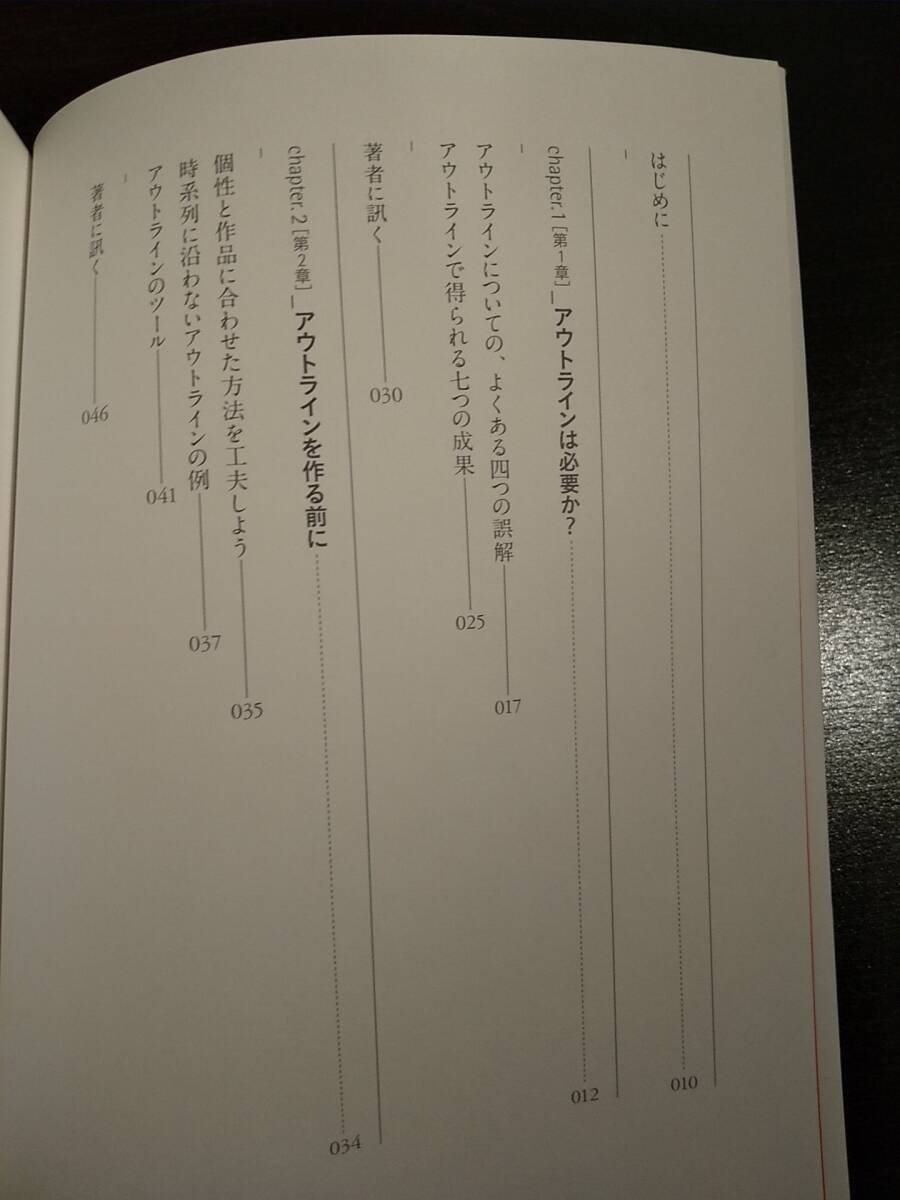 はじめに 010
chapter.1［第1章］_アウトラインは必要か? 012
アウトラインについての、よくある四つの誤解 017
アウトラインで得られる七つの成果 025
著者に訊く 030
chapter.2［第2章］_アウトラインを作る前に 034
個性と作品に合わせた方法を工夫しよう 035
時系列に沿わないアウトラインの例 037
アウトラインのツール 041
著者に訊く 046